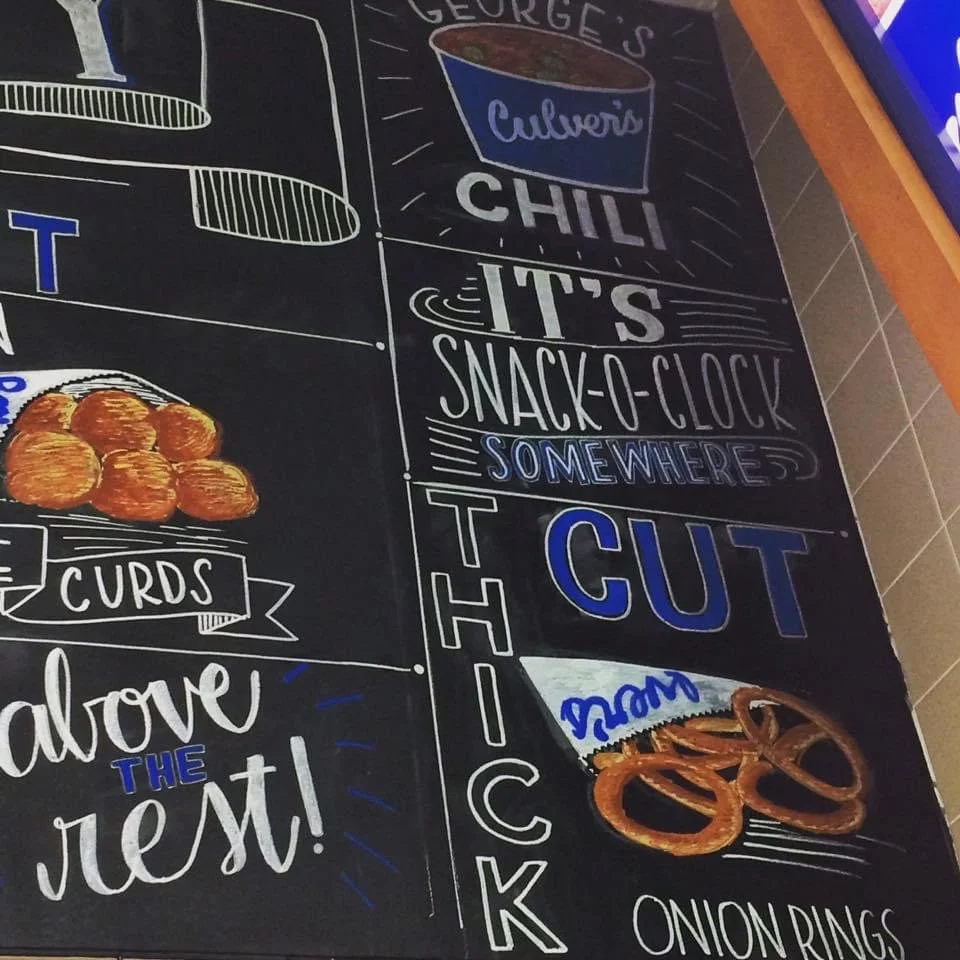 Y
T
CURDS
above
THE
rest!
GEORGE'S
Culver's
CHILI
IT'S
SNACK-O-CLOCK
SOMEWHERE
THICK
CUT
Culver's
ONION RINGS